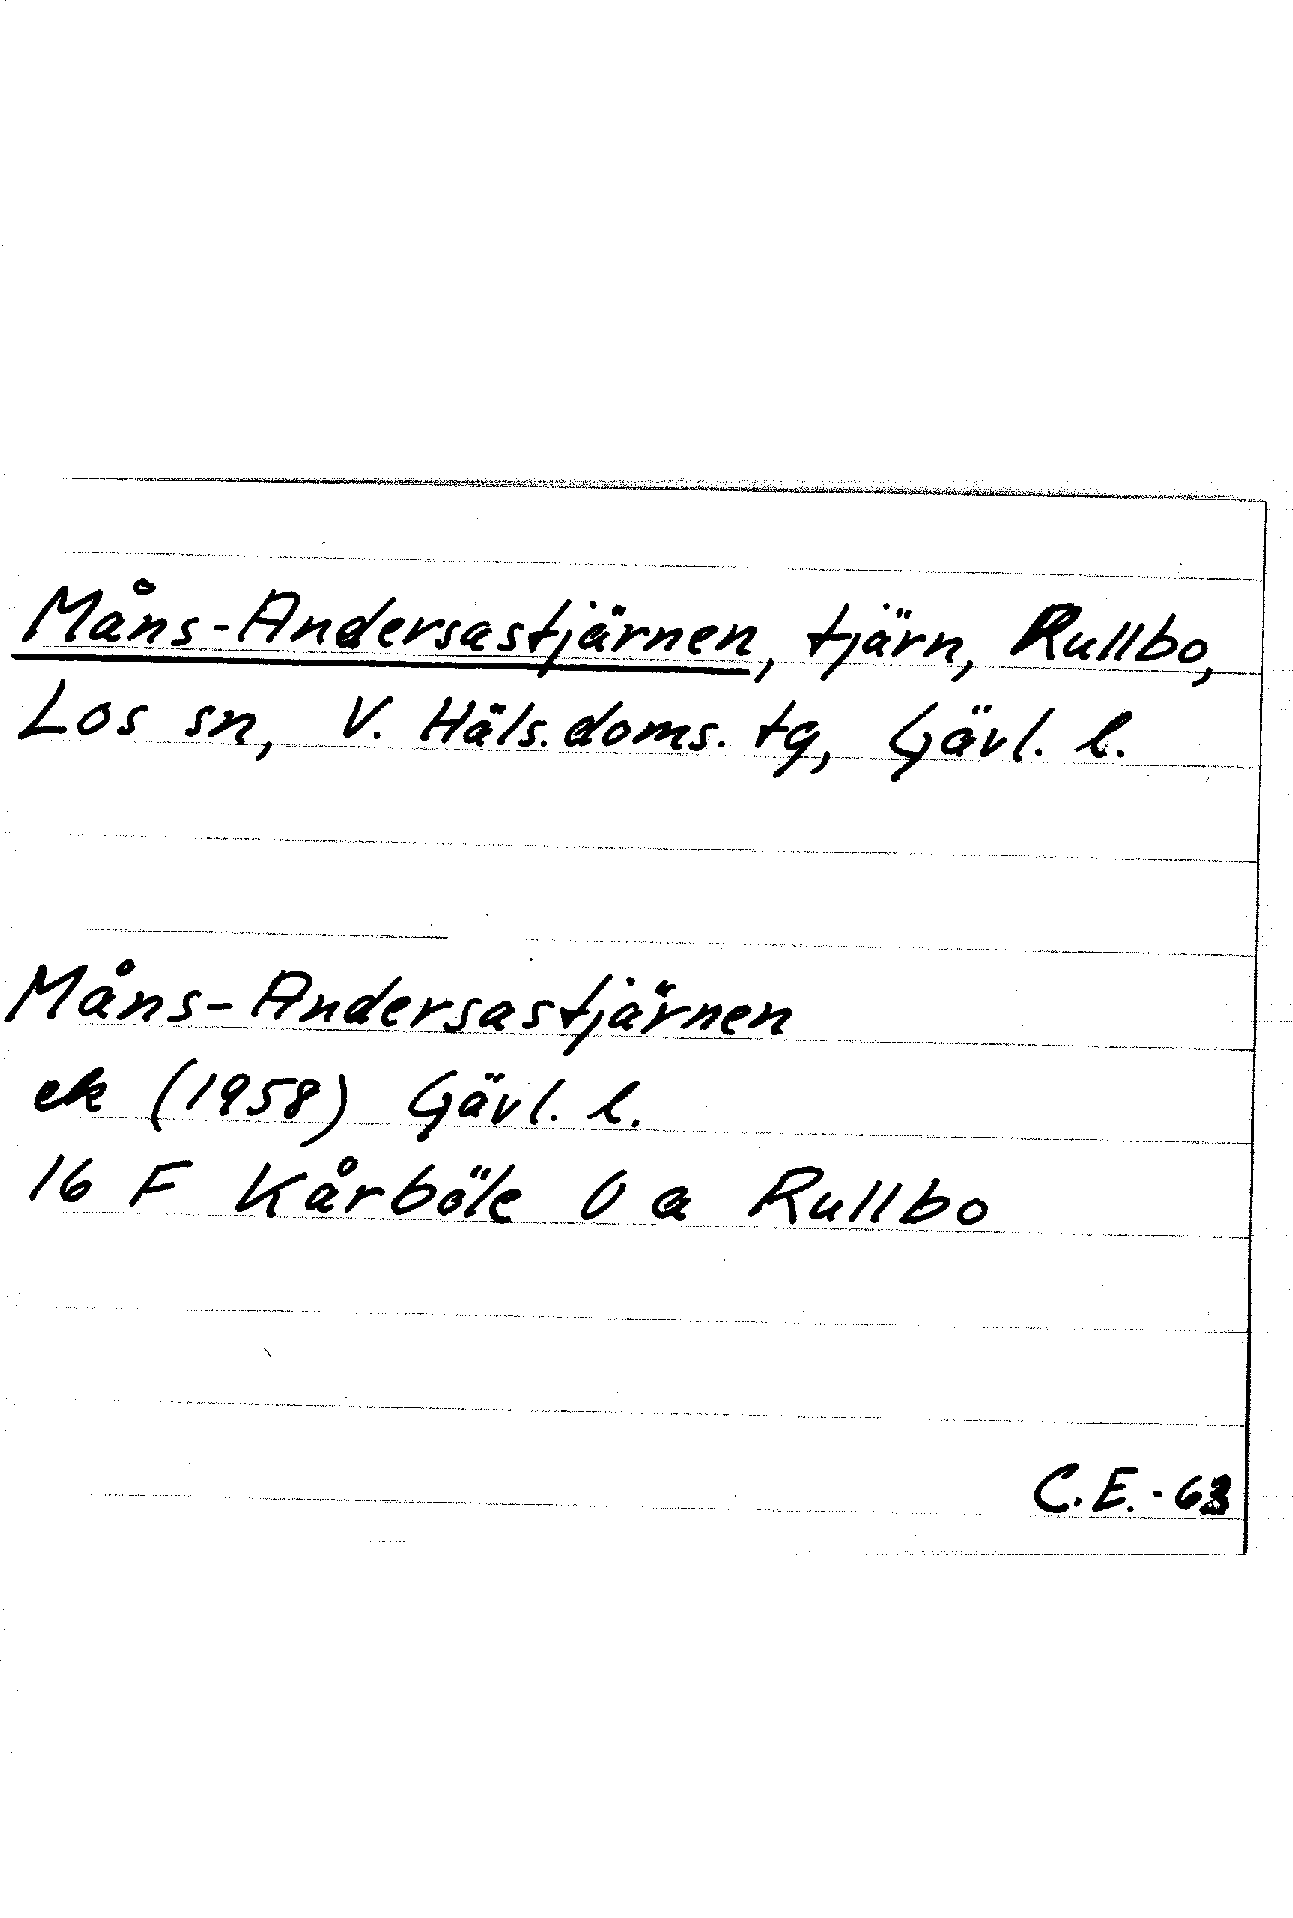 Måns-Andersastjärnen, tjärn, Rullbo,
Los sn, V. Häls. doms. tg, Gävl. l.
Måns-Andersastjärnen
ek (1958) Gävl. l.
16 F Kårböle U a Rullbo
C.E. - 63